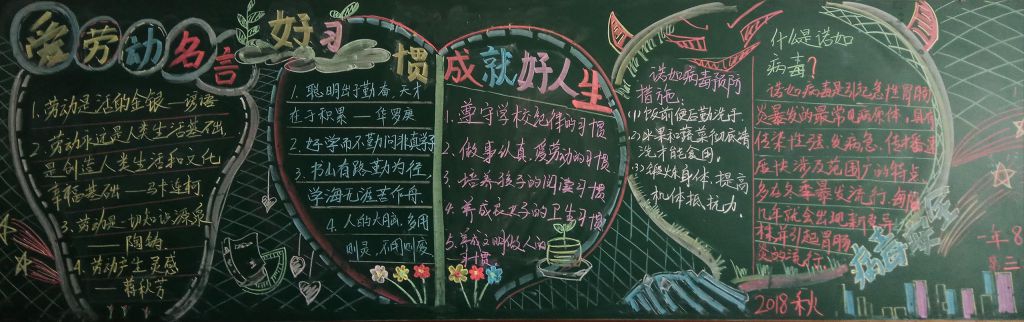 爱劳动名言
1.劳动是活的金银——谚语
2.劳动永远是人类生活基础,
是创造人类生活和文化
幸福基础——马卡连柯
3.劳动是一切知识源泉
——陶铸
4.劳动产生灵感
——蒋秋芳
好习惯成就好人生
1.聪明出于勤奋,天才
在于积累——华罗庚
2.好学而不勤问非真学
3.书山有路勤为径,
学海无涯苦作舟.
4.人的大脑,多用
则灵,不用则废
1.遵守学校纪律的习惯
2.做事认真,爱劳动的习惯
3.培养孩子的阅读习惯
4.养成良好的卫生习惯
5.养成文明做人的
习惯
诺如病毒预防
措施:
(1)饭前便后勤洗手.
(2)水果和蔬菜彻底清
洗才能食用.
(3)锻炼身体,提高
机体抵抗力.
什么是诺如
病毒?
诺如病毒是引起急性胃肠
炎暴发的最常见病原体,具有
传染性强,发病急、传播速
度快涉及范围广的特点
多在冬季暴发流行,每隔
几年就会出现新变异
株并引起胃肠
炎的流行
病毒
2018秋
一年8
第三